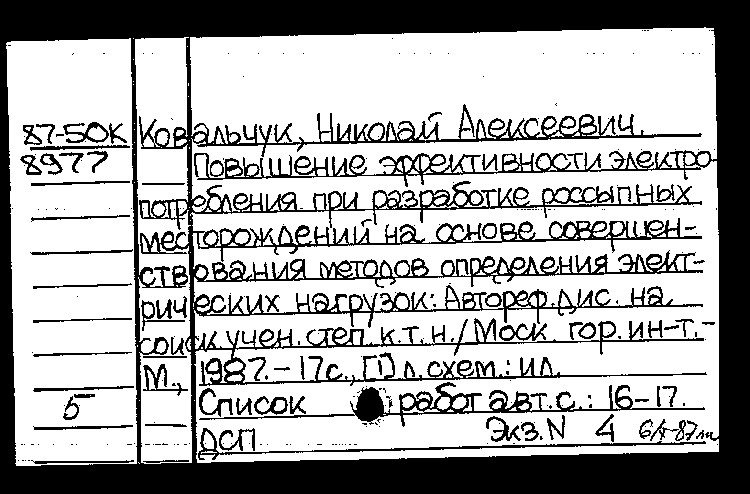 87-50К Ковальчук, Николай Алексеевич.
8977 Повышение эффективности электро-
потребления при разработке россыпных
месторождений на основе совершен-
ствования методов определения элект-
рических нагрузок: Автореф. дис. на
соиск. учен. степ. к.т.н./Моск. гор. ин-т.-
М., 1987.-17с., [1] л. схем.: ил.
5 Список работ авт. с.: 16-17.
ДСП Экз. N 4